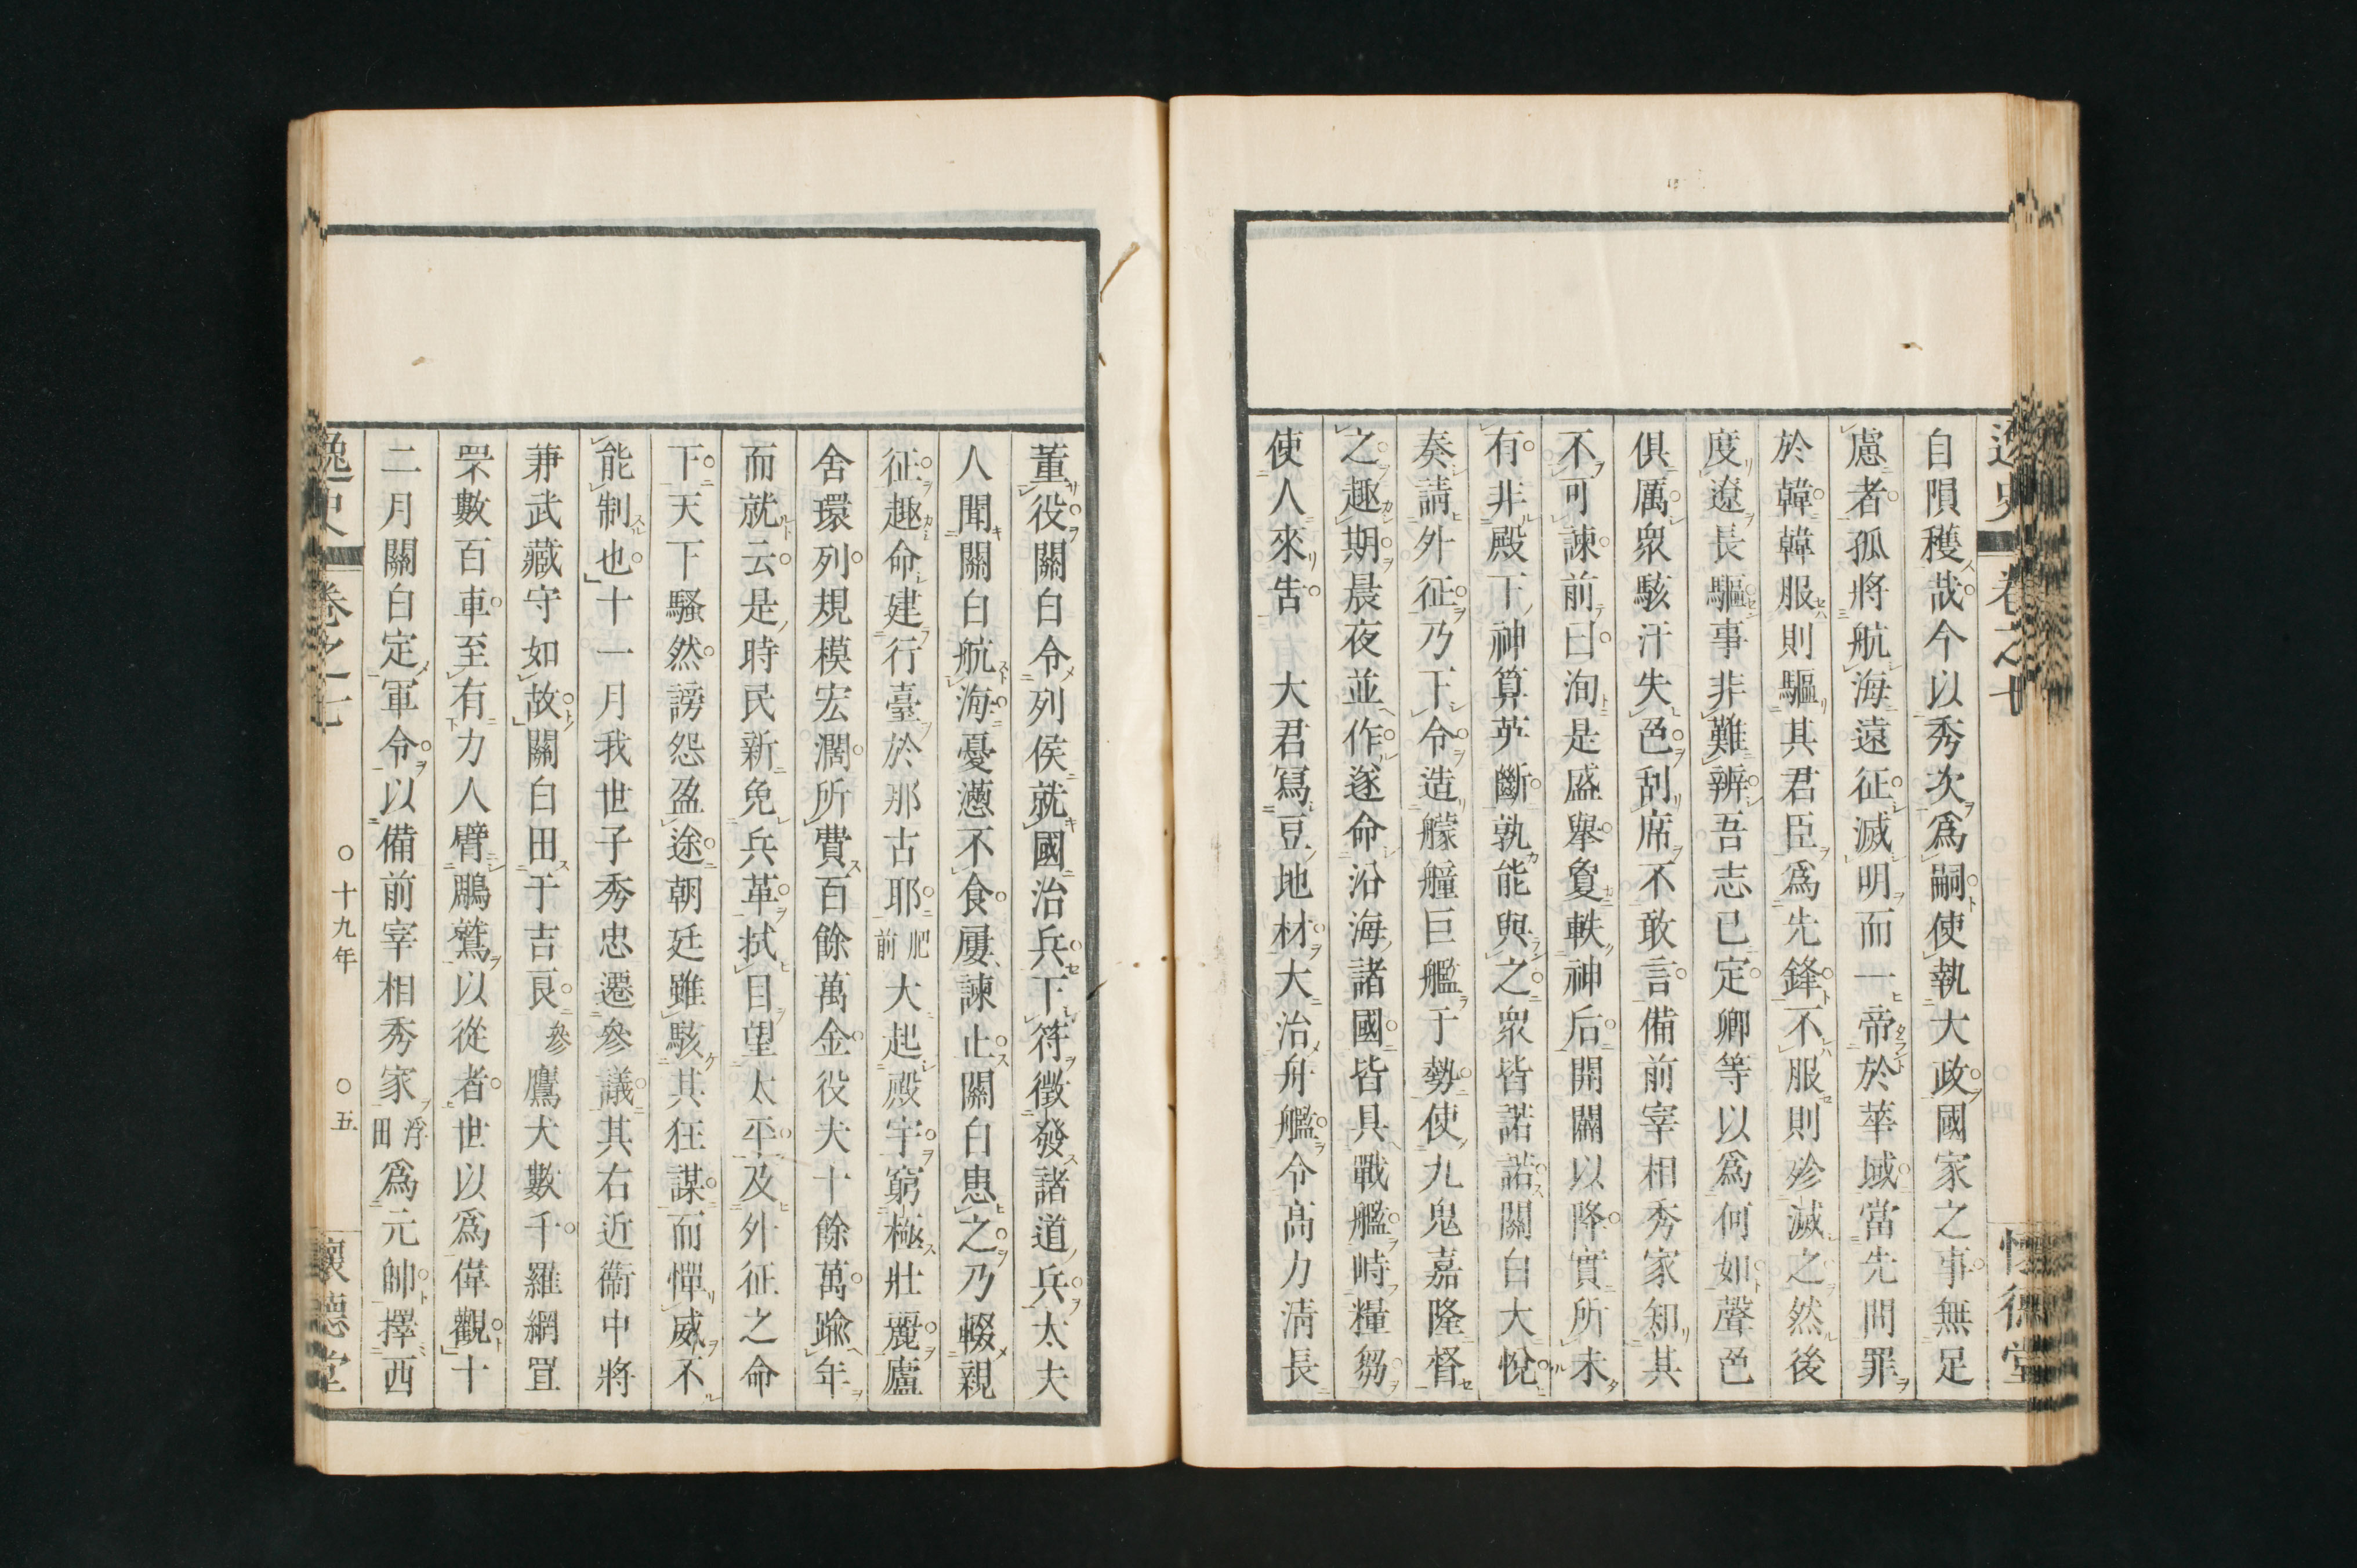 逸史 卷之七 懷德堂
自隕穫哉今以秀次爲嗣使執大政國家之事無足
慮者孤將航海遠征滅明而一帝於華域當先問罪
於韓韓服則驅其君臣爲先鋒不服則殄滅之然後
度遼長驅事非難辨吾志已定卿等以爲何如聲色
俱厲衆駭汗失色刮席不敢言備前宰相秀家知其
不可諫前曰洵是盛擧敻軼神后開闢以降實所未
有非殿下神算英斷孰能與之衆皆諾諾關白大悅
奏請外征乃下令造艨艟巨艦于勢使九鬼嘉隆督
之趣期晨夜並作遂命沿海諸國皆具戰艦峙糧芻
使人來告 大君寫豆地材大治舟艦令高力淸長
董役關白令列侯就國治兵下符徵發諸道兵太夫
人聞關白航海憂懣不食屢諫止關白患之乃輟親
征趣命建行臺於那古耶肥前大起殿宇窮極壯麗廬
舍環列規模宏濶所費百餘萬金役夫十餘萬踰年
而就云是時民新免兵革拭目望太平及外征之命
下天下騷然謗怨盈途朝廷雖駭其狂謀而憚威不
能制也十一月我世子秀忠遷參議其右近衞中將
兼武藏守如故關白田于吉良參鷹犬數千羅網罝
罘數百車至有力人臂鵰鷲以從者世以爲偉觀十
二月關白定軍令以備前宰相秀家浮田爲元帥擇西
逸史 卷之七 ○十九年 ○五 懷德堂